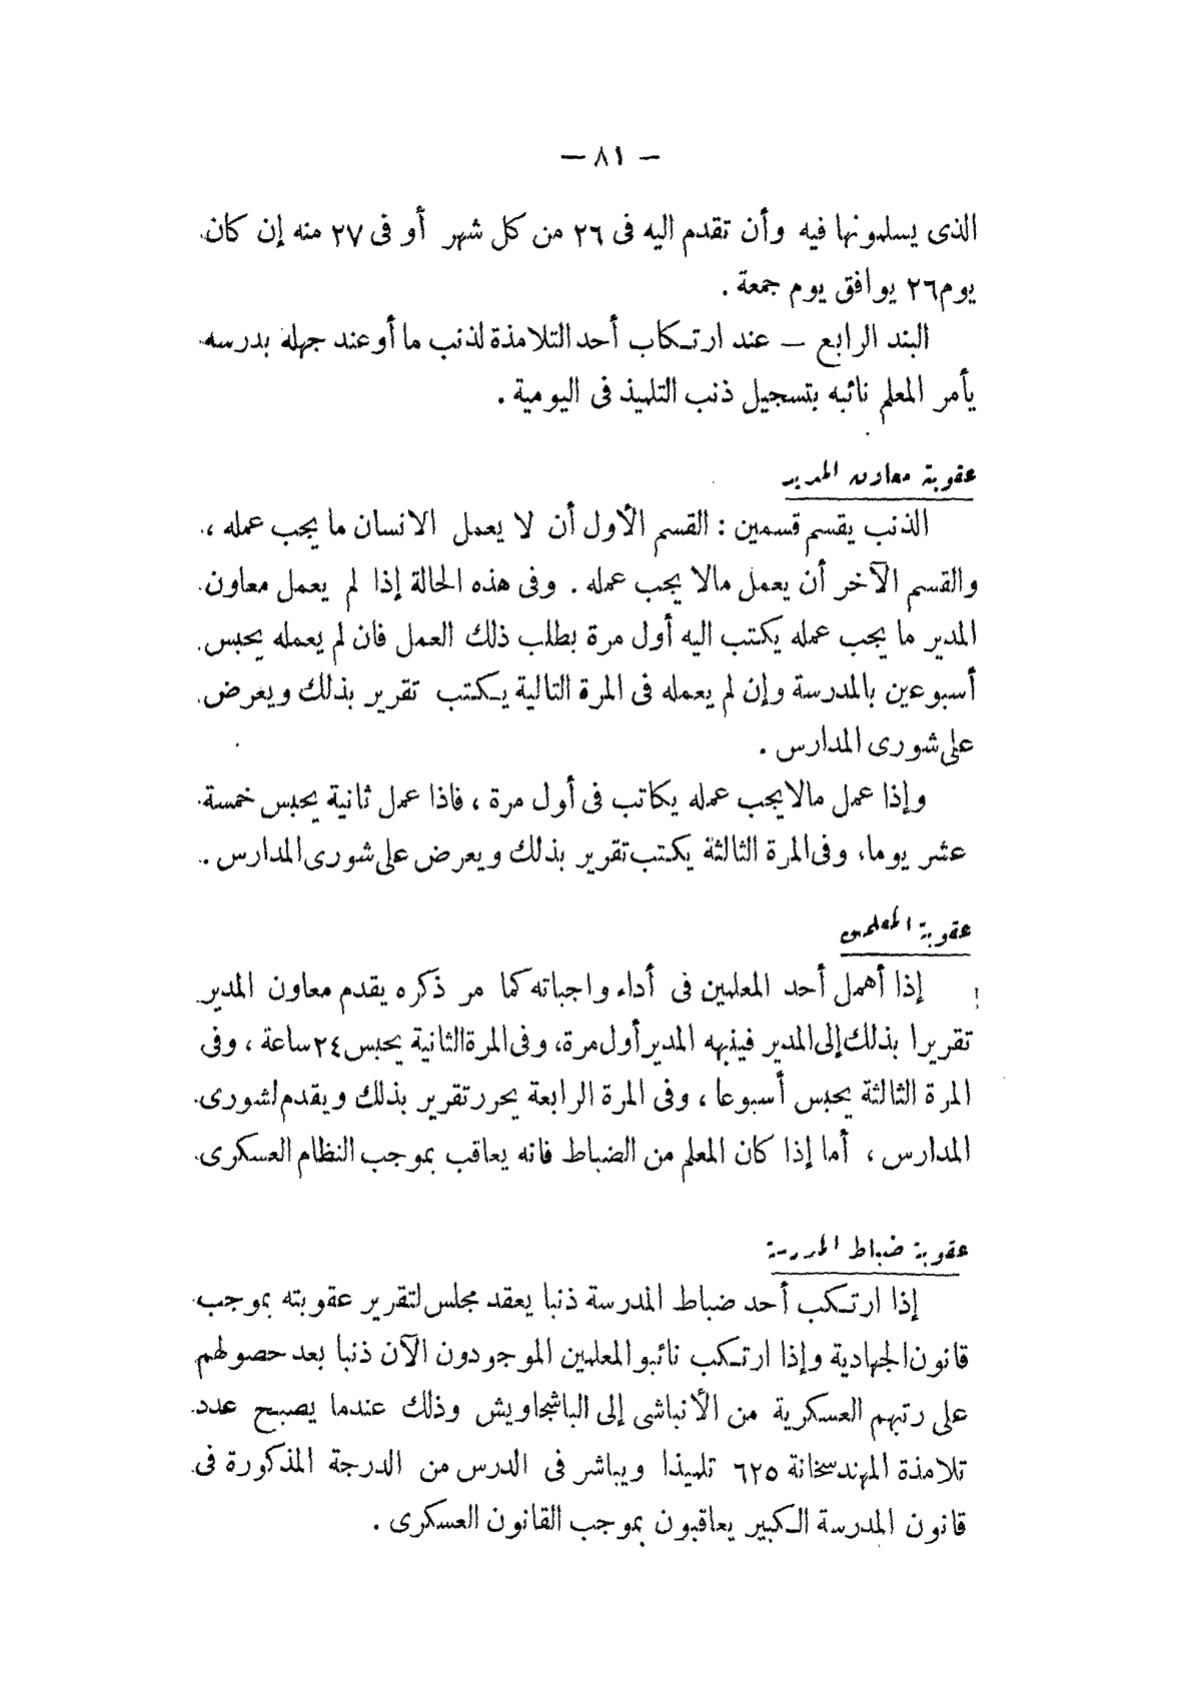 — ٨١ —
الذى يسلمونها فيه وأن تقدم اليه فى ٢٦ من كل شهر أو فى ٢٧ منه إن كان
يوم ٢٦ يوافق يوم جمعة .
البند الرابع — عند ارتكاب أحد التلامذة لذنب ما أو عند جهله بدرسه
يأمر المعلم نائبه بتسجيل ذنب التلميذ فى اليومية .
عقوبة معاون المدير
الذنب يقسم قسمين : القسم الأول أن لا يعمل الانسان ما يجب عمله ،
والقسم الآخر أن يعمل مالا يجب عمله . وفى هذه الحالة إذا لم يعمل معاون
المدير ما يجب عمله يكتب اليه أول مرة بطلب ذلك العمل فان لم يعمله يحبس
أسبوعين بالمدرسة وإن لم يعمله فى المرة التالية يكتب تقرير بذلك ويعرض
على شورى المدارس .
وإذا عمل مالا يجب عمله يكاتب فى أول مرة ، فاذا عمل ثانية يحبس خمسة
عشر يوما، وفى المرة الثالثة يكتب تقرير بذلك ويعرض على شورى المدارس .
عقوبة المعلمين
إذا أهمل أحد المعلمين فى أداء واجباته كما مر ذكره يقدم معاون المدير
تقريرا بذلك إلى المدير فينبهه المدير أول مرة، وفى المرة الثانية يحبس ٢٤ ساعة ، وفى
المرة الثالثة يحبس أسبوعا ، وفى المرة الرابعة يحرر تقرير بذلك ويقدم لشورى
المدارس ، أما إذا كان المعلم من الضباط فانه يعاقب بموجب النظام العسكرى
عقوبة ضباط المدرسة
إذا ارتكب أحد ضباط المدرسة ذنبا يعقد مجلس لتقرير عقوبته بموجب
قانون الجهادية وإذا ارتكب نائبو المعلمين الموجودون الآن ذنبا بعد حصولهم
على رتبهم العسكرية من الأنباشى إلى الباشجاويش وذلك عندما يصبح عدد
تلامذة المهندسخانة ٦٢٥ تلميذا ويباشر فى الدرس من الدرجة المذكورة فى
قانون المدرسة الكبير يعاقبون بموجب القانون العسكرى .